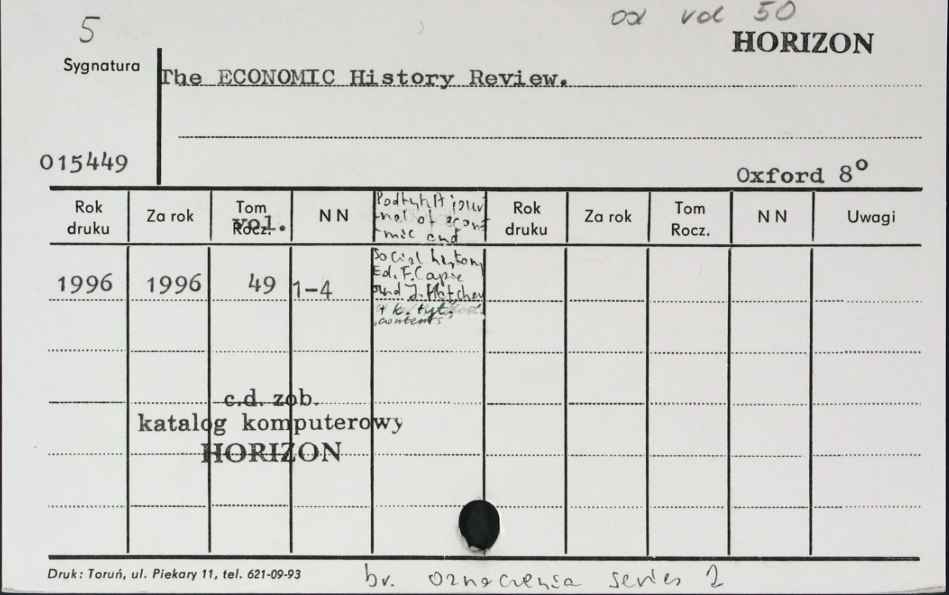 5
od vol 50
HORIZON
Sygnatura
The ECONOMIC History Review.
015449
Oxford 8°
Rok druku Za rok Tom Rocz. vol. NN Rok druku Za rok Tom Rocz. NN Uwagi
Podtyt: A jour
nal of econo
mic and
social history
Ed. F. Capie
and J. Hatcher
+ k. tyt.
contents
1996 1996 49 1-4
c.d. zob.
katalog komputerowy
HORIZON
Druk: Toruń, ul. Piekary 11, tel. 621-09-93
br. oznaczenia series 2